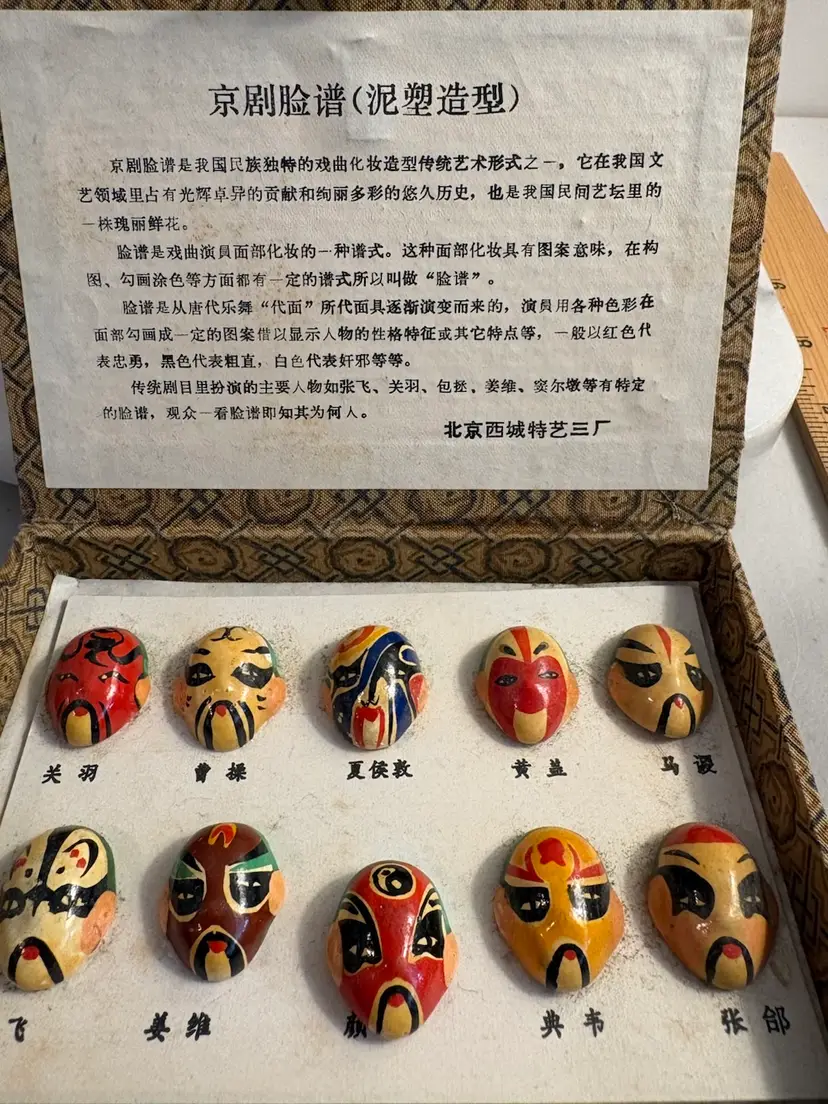 京剧脸谱(泥塑造型)
京剧脸谱是我国民族独特的戏曲化妆造型传统艺术形式之一，它在我国文
艺领域里占有光辉卓异的贡献和绚丽多彩的悠久历史，也是我国民间艺坛里的
一株瑰丽鲜花。
脸谱是戏曲演员面部化妆的一种谱式。这种面部化妆具有图案意味，在构
图、勾画涂色等方面都有一定的谱式所以叫做“脸谱”。
脸谱是从唐代乐舞“代面”所代面具逐渐演变而来的，演员用各种色彩在
面部勾画成一定的图案借以显示人物的性格特征或其它特点等，一般以红色代
表忠勇，黑色代表粗直，白色代表奸邪等等。
传统剧目里扮演的主要人物如张飞、关羽、包拯、姜维、窦尔墩等有特定
的脸谱，观众一看脸谱即知其为何人。
北京西城特艺三厂
关羽 曹操 夏侯敦 黄盖 马谡
飞 姜维 颜 典韦 张郃